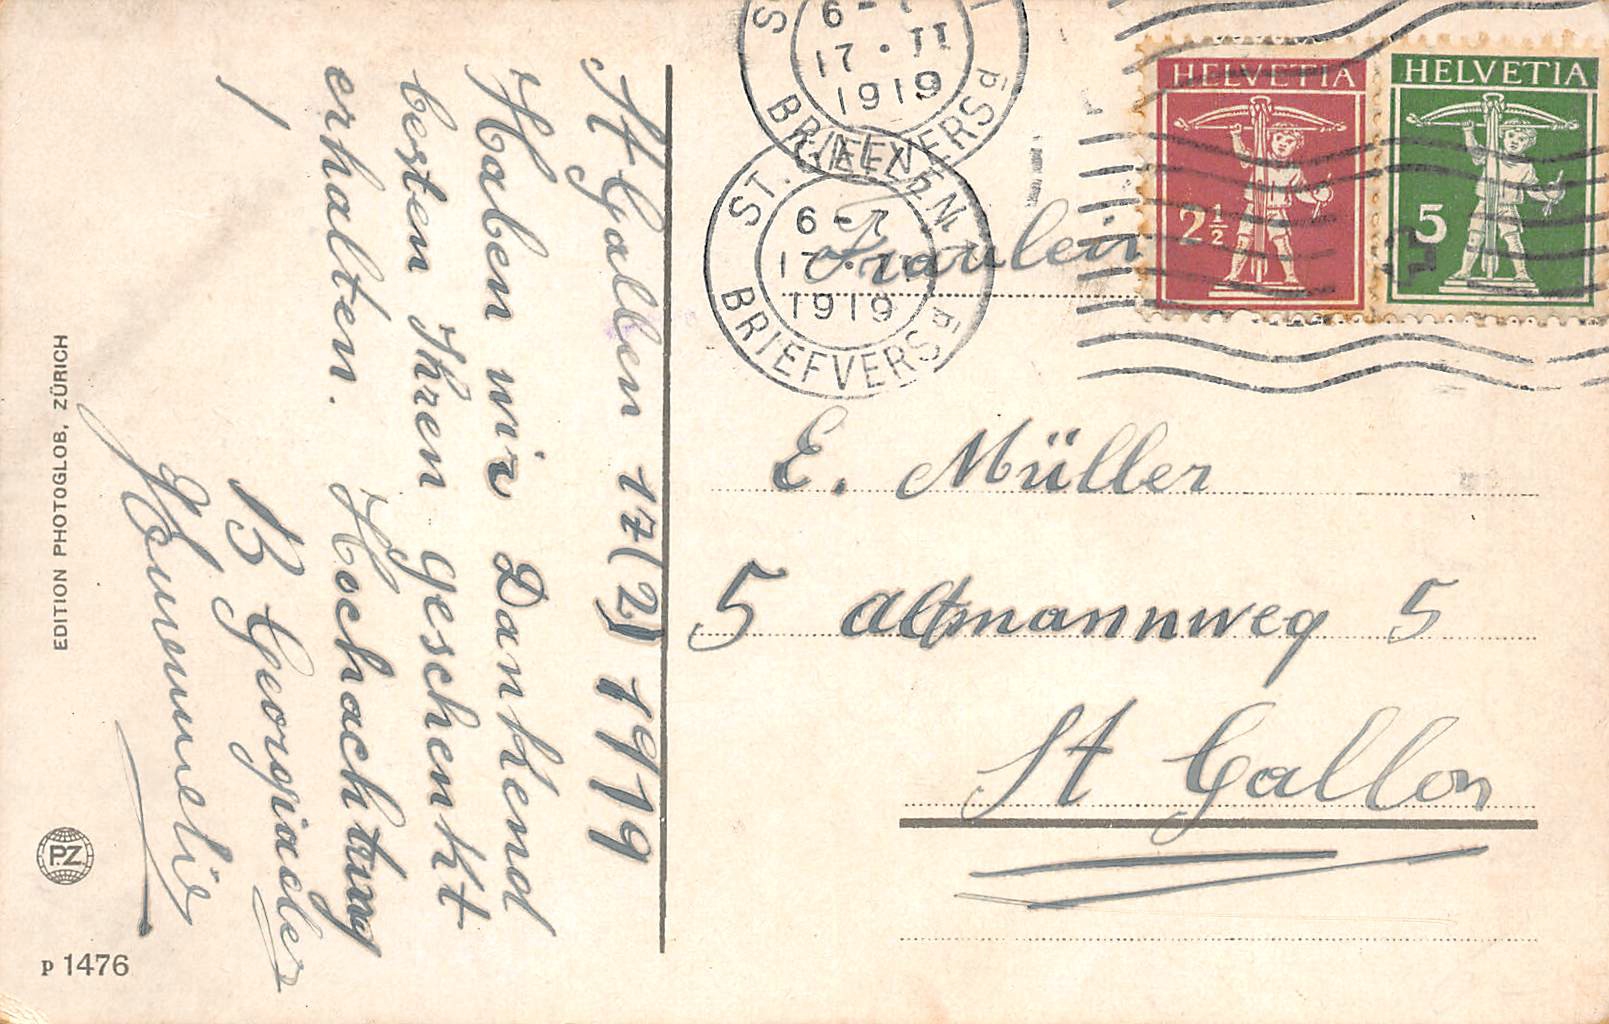 St Gallen 17(2) 1919
Haben wir Dankend
besten Ihren geschenkt
erhalten. Hochachtung
B Georgiades
EDITION PHOTOGLOB, ZÜRICH
PZ
P 1476
6-7
17.II
1919
BRIEFVERSd
ST. GALLEN
6-7
17.II
1919
BRIEFVERSd
HELVETIA
2½
HELVETIA
5
Fräulein
E. Müller
5 Altmannweg 5
St Gallen